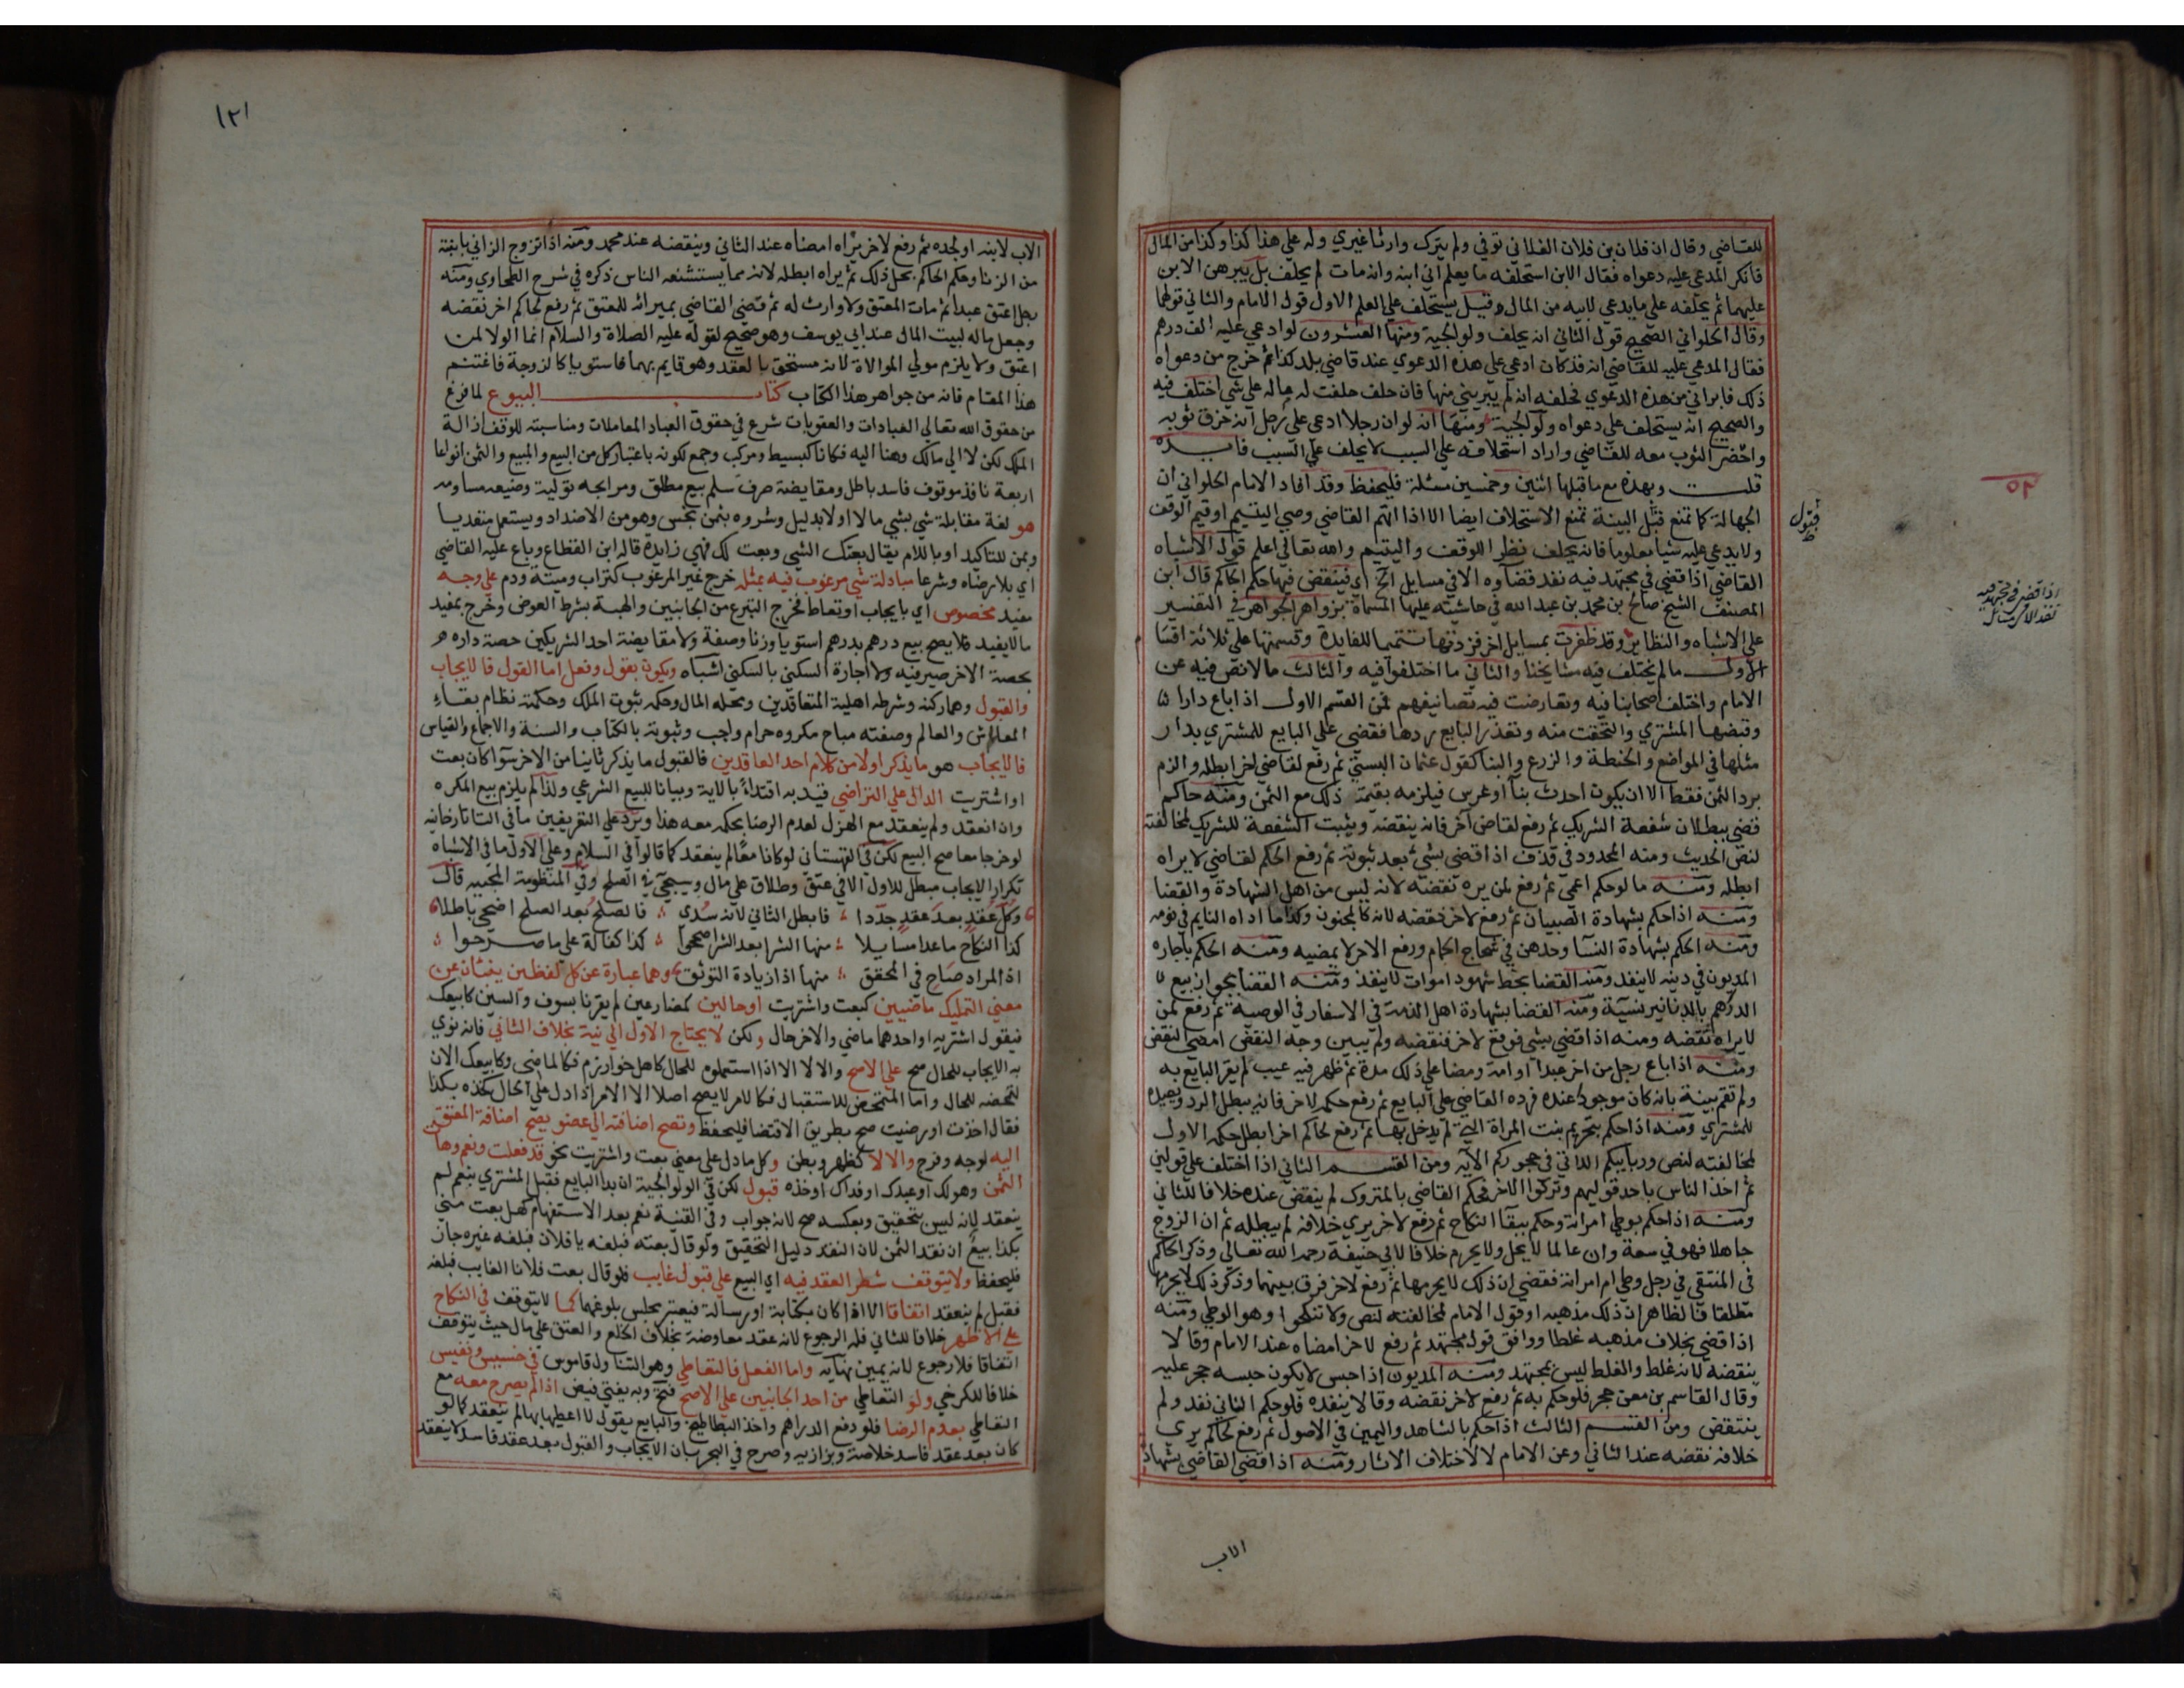 للقاضي وقال ان فلان بن فلان الفلاني توفي ولم يترك وارثا غيري وله علي هذا كذا وكذا من المال
فانكر المدعي عليه دعواه فقال الابن استحلفه ما يعلم اني ابنه وانه مات لم يحلف بل يبرهن الابن
عليهما ثم يحلفه علي ما يدعي لابيه من المال وقيل يستحلف علي العلم الاول قول الامام والثاني قولهما
وقال الحلواني الصحيح قول الثاني انه يحلف ولوالجية ومنها العشرون لو ادعي عليه الف درهم
فقال المدعي عليه للقاضي انه قد كان ادعي علي هذه الدعوي عند قاضي بلد كذا ثم خرج من دعواه
ذلك فابراني من هذه الدعوي فحلفه انه لم يبريني منها فان حلف حلفت له ماله علي شي اختلف فيه
والصحيح انه يستحلف علي دعواه ولوالجية ومنها انه لو ان رجلا ادعي علي رجل انه خرق ثوبه
واحضر الثوب معه للقاضي واراد استحلافه علي السبب لا يحلف علي السبب فايده
قلت وبهذه مع ما قبلها اثنين وخمسين مسئلة فليحفظ وقد افاد الامام الحلواني ان
الجهالة كما تمنع قبل البينة تمنع الاستحلاف ايضا الا اذا اتهم القاضي وصي اليتيم او قيم الوقف
ولا يدعي عليه شيا معلوما فانه يحلف نظرا للوقف واليتيم والله تعالي اعلم قول الاشباه
القاضي اذا قضي في مجتهد فيه نفذ قضاوه الا في مسايل الخ اي فينقض فيها حكم الحاكم قال ابن
المصنف الشيخ صالح بن محمد بن عبد الله في حاشيته عليها المسماة بزواهر الجواهر في التفسير
علي الاشباه والنظاير وقد ظفرت بمسايل اخر فزدتها تتميما للفايدة وقسمتها علي ثلاثة اقسام
الاول ما لم يختلف فيه مشايخنا والثاني ما اختلفوا فيه والثالث ما لا نص فيه عن
الامام واختلف اصحابنا فيه وتعارضت فيه تصانيفهم فمن القسم الاول اذا باع دارا
وقبضها المشتري واستحقت منه وتعذر البايع ردها فقضي علي البايع للمشتري بدار
مثلها في المواضع والخطة والزرع والبنا كقول عثمان البستي ثم رفع لقاضي اخر ابطله والزم
برد الثمن فقط الا ان يكون احدث بنا او غرس فيلزمه بقيمة ذلك مع الثمن ومنه حاكم
قضي ببطلان شفعة الشريك ثم رفع لقاضي آخر فانه ينقضه ويثبت الشفعة للشريك لمخالفته
لنص الحديث ومنه المحدود في قذف اذا قضي بشي بعد ثبوته ثم رفع الحكم لقاضي لا يراه
ابطله ومنه ما لو حكم اعمي ثم رفع لمن يره نقضه لانه ليس من اهل الشهادة والقضا
ومنه اذا حكم بشهادة الصبيان ثم رفع لاخر نقضه لانه كالمجنون وكذا ما اداه النايم في نومه
ومنه الحكم بشهادة النسا وحدهن في شجاج الحمام ورفع الاخر لا يمضيه ومنه الحكم باجاره
المديون في دينه لا ينفذ ومنه القضا بخط شهود اموات لا ينفذ ومنه القضا بجواز بيع
الدراهم بالدنانير نسيئة ومنه القضا بشهادة اهل الذمة في الاسفار في الوصية ثم رفع لمن
لا يراه نقضه ومنه اذا قضي بشي فوقع لاخر فنقضه ولم يبين وجه النقض امضي النقض
ومنه اذا باع رجل من اخر عبدا او امة ومضا علي ذلك مدة ثم ظهر فيه عيب لم يقر البايع به
ولم تقم بينة بانه كان موجودا عنده فرده القاضي علي البايع ثم رفع حكمه لاخر فانه يبطل الرد ويعيده
للمشتري ومنه اذا حكم بتحريم بنت المراة التي لم يدخل بها ثم رفع لحاكم اخر ابطل حكمه الاول
لمخالفته لنص وربايبكم اللاتي في حجوركم الآيه ومن القسم الثاني اذا اختلف علي قولين
ثم اخذ الناس باحد قوليهم وتركوا الاخر فحكم القاضي بالمتروك لم ينقض عنده خلافا للثاني
ومنه اذا حكم بوطي امراته وحكم ببقا النكاح ثم رفع لاخر يري خلافه لم يبطله ثم ان الزوج
جاهلا فهو في سعة وان عالما لا يحل ولا يحرم خلافا لابي حنيفة رحمه الله تعالي وذكر الحاكم
في المنتقي في رجل وطي ام امراته فقضي ان ذلك لا يحرمها ثم رفع لاخر فرق بينهما وذكر ذلك لا يحرمها
مطلقا فالظاهر ان ذلك مذهبه او قول الامام لمخالفته لنص ولا تنكحوا وهو الوطي ومنه
اذا قضي بخلاف مذهبه غلطا ووافق قول مجتهد ثم رفع لاخر امضاه عند الامام وقالا
ينقضه لانه غلط والغلط ليس بمجتهد ومنه المديون اذا حبس لا يكون حبسه حجر عليه
وقال القاسم بن معن حجر فلو حكم به ثم رفع لاخر نقضه وقالا ينفذه فلو حكم الثاني نفذ ولم
ينتقض ومن القسم الثالث اذا حكم بالشاهد واليمين في الاصول ثم رفع لحاكم يري
خلافه نقضه عند الثاني وعن الامام لا لاختلاف الاثار ومنه اذا قضي القاضي بشهادة
قبول
٥٢
اذا قضي في مجتهد فيه
نفذ الا في مسائل
الاب
١٢١
الاب لابنه او لجده ثم رفع لاخر يراه امضاه عند الثاني وينقضه عند محمد ومنه اذا تزوج الزاني بابنته
من الزنا وحكم الحاكم بحل ذلك ثم يراه ابطله لانه مما يستشنعه الناس ذكره في شرح الطحاوي ومنه
رجل اعتق عبدا ثم مات المعتق ولا وارث له ثم قضي القاضي بميراثه للمعتق ثم رفع لحاكم اخر نقضه
وجعل ماله لبيت المال عند ابي يوسف وهو صحيح لقوله عليه الصلاة والسلام انما الولا لمن
اعتق ولا يلزم مولي الموالاة لانه مستحق بالعقد وهو قايم بهما فاستويا كالزوجة فاغتنم
هذا المقام فانه من جواهر هذا الكتاب كتاب البيوع لما فرغ
من حقوق الله تعالي العبادات والعقوبات شرع في حقوق العباد المعاملات ومناسبته للوقف ازالة
الملك لكن لا الي مالك وهنا اليه فكانا كبسيط ومركب وجمع لكونه باعتبار كل من البيع والمبيع والثمن انواعا
اربعة نافذ موقوف فاسد باطل ومقايضة صرف سلم بيع مطلق ومرابحه تولية وضيعه مساومه
هو لغة مقابلة شي بشي مالا او لا بدليل وشروه بثمن بخس وهو من الاضداد ويستعمل متعديا
وبمن للتاكيد او باللام يقال بعتك الشي وبعت لك فهي زايدة قاله ابن القطاع وباع عليه القاضي
اي بلا رضاه وشرعا مبادلة شي مرغوب فيه بمثله خرج غير المرغوب كتراب وميتة ودم علي وجه
مفيد مخصوص اي بايجاب او تعاط فخرج التبرع من الجانبين والهبة بشرط العوض وخرج بمفيد
ما لا يفيد فلا يصح بيع درهم بدرهم استويا وزنا وصفة ولا مقايضة احد الشريكين حصة داره
بحصة الاخر صيرفيه ولا اجارة السكني بالسكني اشباه ويكون بقول وفعل اما القول فالايجاب
والقبول وهما ركنه وشرطه اهلية المتعاقدين ومحله المال وحكمه ثبوت الملك وحكمته نظام بقاء
المعاش والعالم وصفته مباح مكروه حرام واجب وثبوته بالكتاب والسنة والاجماع والقياس
فالايجاب هو ما يذكر اولا من كلام احد العاقدين فالقبول ما يذكر ثانيا من الاخر سوا كان بعت
او اشتريت الدال علي التراضي قيد به اقتداءً بالاية وبيانا للبيع الشرعي ولذا لم يلزم بيع المكره
وان انعقد ولم ينعقد مع الهزل لعدم الرضا بحكمه معه هذا ويرد علي التعريفين ما في التاتارخانيه
لو خرجا معا صح البيع لكن في القهستاني لو كانا معا لم ينعقد كما قالوا في السلام وعلي الاول ما في الاشباه
تكرار الايجاب مبطل للاول الا في عتق وطلاق علي مال وسيجي في الصلح وفي المنظومة المحبيه قال
وكل عقد بعد عقد جددا فابطل الثاني لانه سدى فالصلح بعد الصلح اضحي باطلا
كذا النكاح ما عدا مسايلا منها الشرا بعد الشرا صححوا كذا كفالة علي ما صرحوا
اذ المراد صاح في المحقق منها اذا زيادة التوثق وهما عبارة عن كل لفظين ينبئان عن
معني التمليك ماضيين كبعت واشتريت او حالين كمضارعين لم يقرنا بسوف والسين كابيعك
فيقول اشتريه او احدهما ماضي والاخر حال ولكن لا يحتاج الاول الي نية بخلاف الثاني فانه نوي
به الايجاب للحال صح علي الاصح والا لا الا اذا استعملوه للحال كاهل خوارزم فكالماضي وكابيعك الان
لتمحضه للحال واما المتمحض للاستقبال فكالامر لا يصح اصلا الا الامر اذا دل علي الحال كخذه بكذا
فقال اخذت او رضيت صح بطريق الاقتضا فليحفظ وتصح اضافته الي عضو يصح اضافة العتق
اليه لوجه وفرج والا لا كظهر وبطن وكل ما دل علي معني بعت واشتريت نحو قد فعلت ونعم وهات
الثمن وهو لك او عبدك او فداك او خذه قبول لكن في الولوالجية ان بدا البايع فقبل المشتري بنعم لم
ينعقد لانه ليس بتحقيق وبعكسه صح لانه جواب وفي القنية نعم بعد الاستفهام كهل بعت مني
بكذا بيع ان نقد الثمن لان النقد دليل التحقيق ولو قال بعته فبلغه يا فلان فبلغه غيره جاز
فليحفظ ولا يتوقف شطر العقد فيه اي البيع علي قبول غايب فلو قال بعت فلانا الغايب فبلغه
فقبل لم ينعقد اتفاقا الا اذا كان بكتابة او رسالة فيعتبر مجلس بلوغها كما لا يتوقف في النكاح
علي الاظهر خلافا للثاني فله الرجوع لانه عقد معاوضة بخلاف الخلع والعتق علي مال حيث يتوقف
اتفاقا فلا رجوع لانه يمين نهايه واما الفعل فالتعاطي وهو التناول قاموس في خسيس ونفيس
خلافا للكرخي ولو التعاطي من احد الجانبين علي الاصح فتح وبه يفتي فيض اذا لم يصرح معه مع
التعاطي بعدم الرضا فلو دفع الدراهم واخذ البطاطيخ والبايع يقول لا اعطيها بها لم ينعقد كما لو
كان بعد عقد فاسد خلاصة وبزازيه وصرح في البحر بان الايجاب والقبول بعد عقد فاسد لا ينعقد